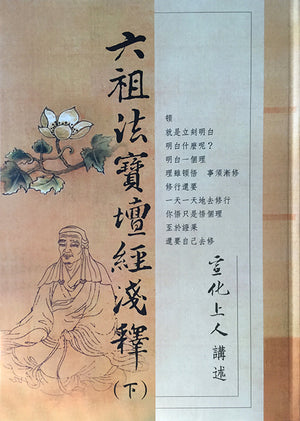 六祖法寶壇經淺釋
(下)
頓
就是立刻明白
明白什麼呢？
明白一個理
理雖頓悟　事須漸修
修行還要
一天一天地去修行
你悟只是悟個理
至於證果
還要自己去修
宣化上人 講述